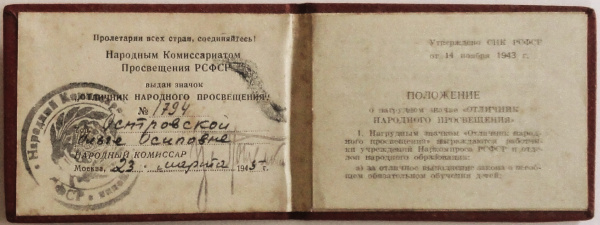 Пролетарии всех стран, соединяйтесь!
Народным Комиссариатом
Просвещения РСФСР
выдан значок
„ОТЛИЧНИК НАРОДНОГО ПРОСВЕЩЕНИЯ"
№ 1794
Островской
Ольге Осиповне
НАРОДНЫЙ КОМИССАР
Москва, 23 марта 1945 г.
Утверждено СНК РСФСР
от 14 ноября 1943 г.
ПОЛОЖЕНИЕ
о нагрудном значке «ОТЛИЧНИК
НАРОДНОГО ПРОСВЕЩЕНИЯ»
1. Нагрудным значком «Отличник народ-
ного просвещения» награждаются работни-
ки учреждений Наркомпроса РСФСР и отде-
лов народного образования:
а) за отличное выполнение закона о всеоб-
щем обязательном обучении детей;